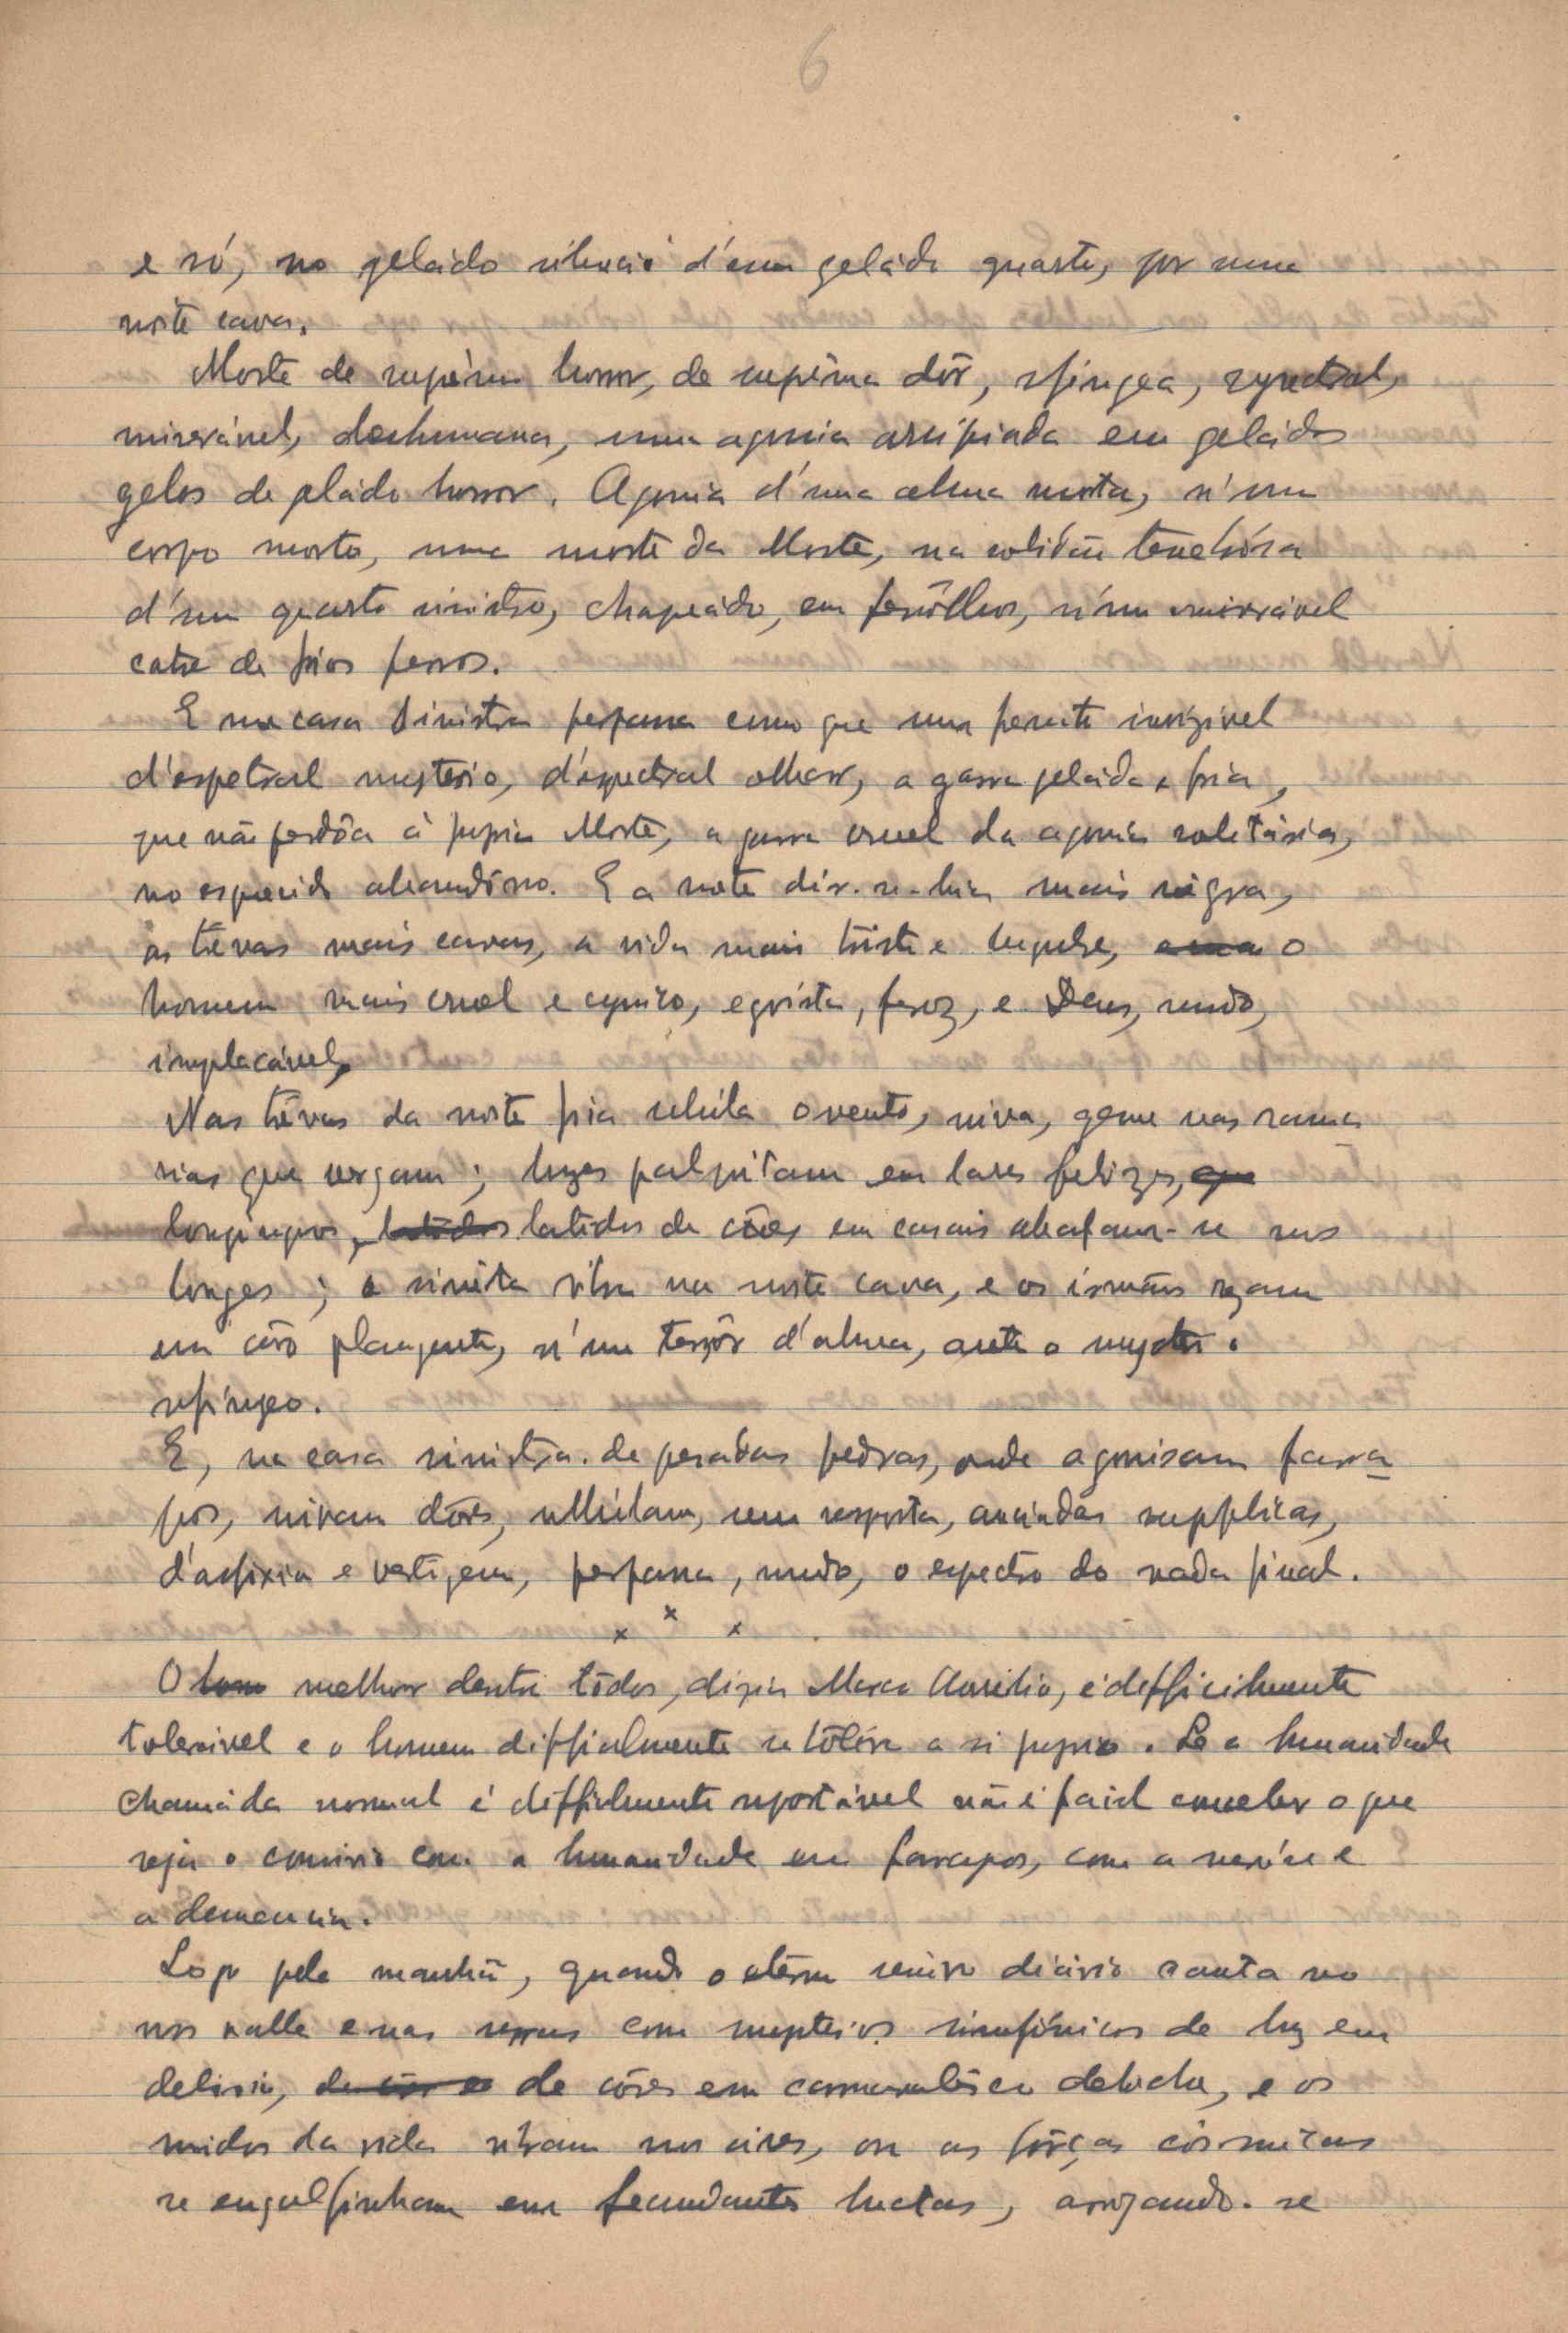 6
e só, no geládo silencio d'um geládo quarto, por uma
noite cava.
Morte de suprêmo horror, de suprêma dôr, sfingea, espectral,
miserável, deshumana, uma agonia arripiada em geládos
gelos de horror. Agonia d'uma alma morta, n'um
corpo morto, uma morte da Morte, na solidão tenebrósa
d'um quarto sinistro, chapeádo, em ferrôlhos, n'um miserável
catre de frios ferros.
E na casa sinistra perpassa como que uma invizivel
d'espetral mysterio, d'espectral olhar, a garra geláda e fria,
que não perdôa á propria Morte, a garra cruel da agonia solitária,
no esquecido abandôno. E a noite dir-se-hia mais négra,
as trévas mais cavas, a vida mais triste e lugubre, o
homem mais cruel e cynico, egoista, feroz, e Deus, mudo,
implacável.
Nas trévas da noite fria sibila o vento, niva, geme nas rama
rias que vergam; luzes palpitam em lares felizes,
longinquos, latidos de cães em casais abafam-se nos
longes; a sineta silva na noite cava, e os irmãos rezam
em côro plangente, n'um terrôr d'alma, ante o mysterio
sfingeo.
E, na casa sinistra de pesadas pedras, onde agonisam farra
pos, nivam dôres, ullulam, sem resposta, anciadas supplicas,
d'asfixia e vertigem, perpassa, mudo, o espectro do nada final.
x x x
O melhor dentre tôdos, dizia Marco Aurelio, é defficilmente
tolerável e o homem difficilmente se toléra a si proprio. Se a humanidade
chamáda normal é defficilmente suportável não é facil conceber o que
seja o convivio com a humanidade em farrapos, com a nevróse e
a demencia.
Logo pela manhã, quando o etérno diário canta no
nos valle e nas serras com mysterios sinfónicos de luz em
delirio, de côres em carnavalêsco debóche, e os
ruidos da vida vibram nos áres, ou as fôrças cósmicas
se engalfinham em fecundantes luctas, arrojando-se